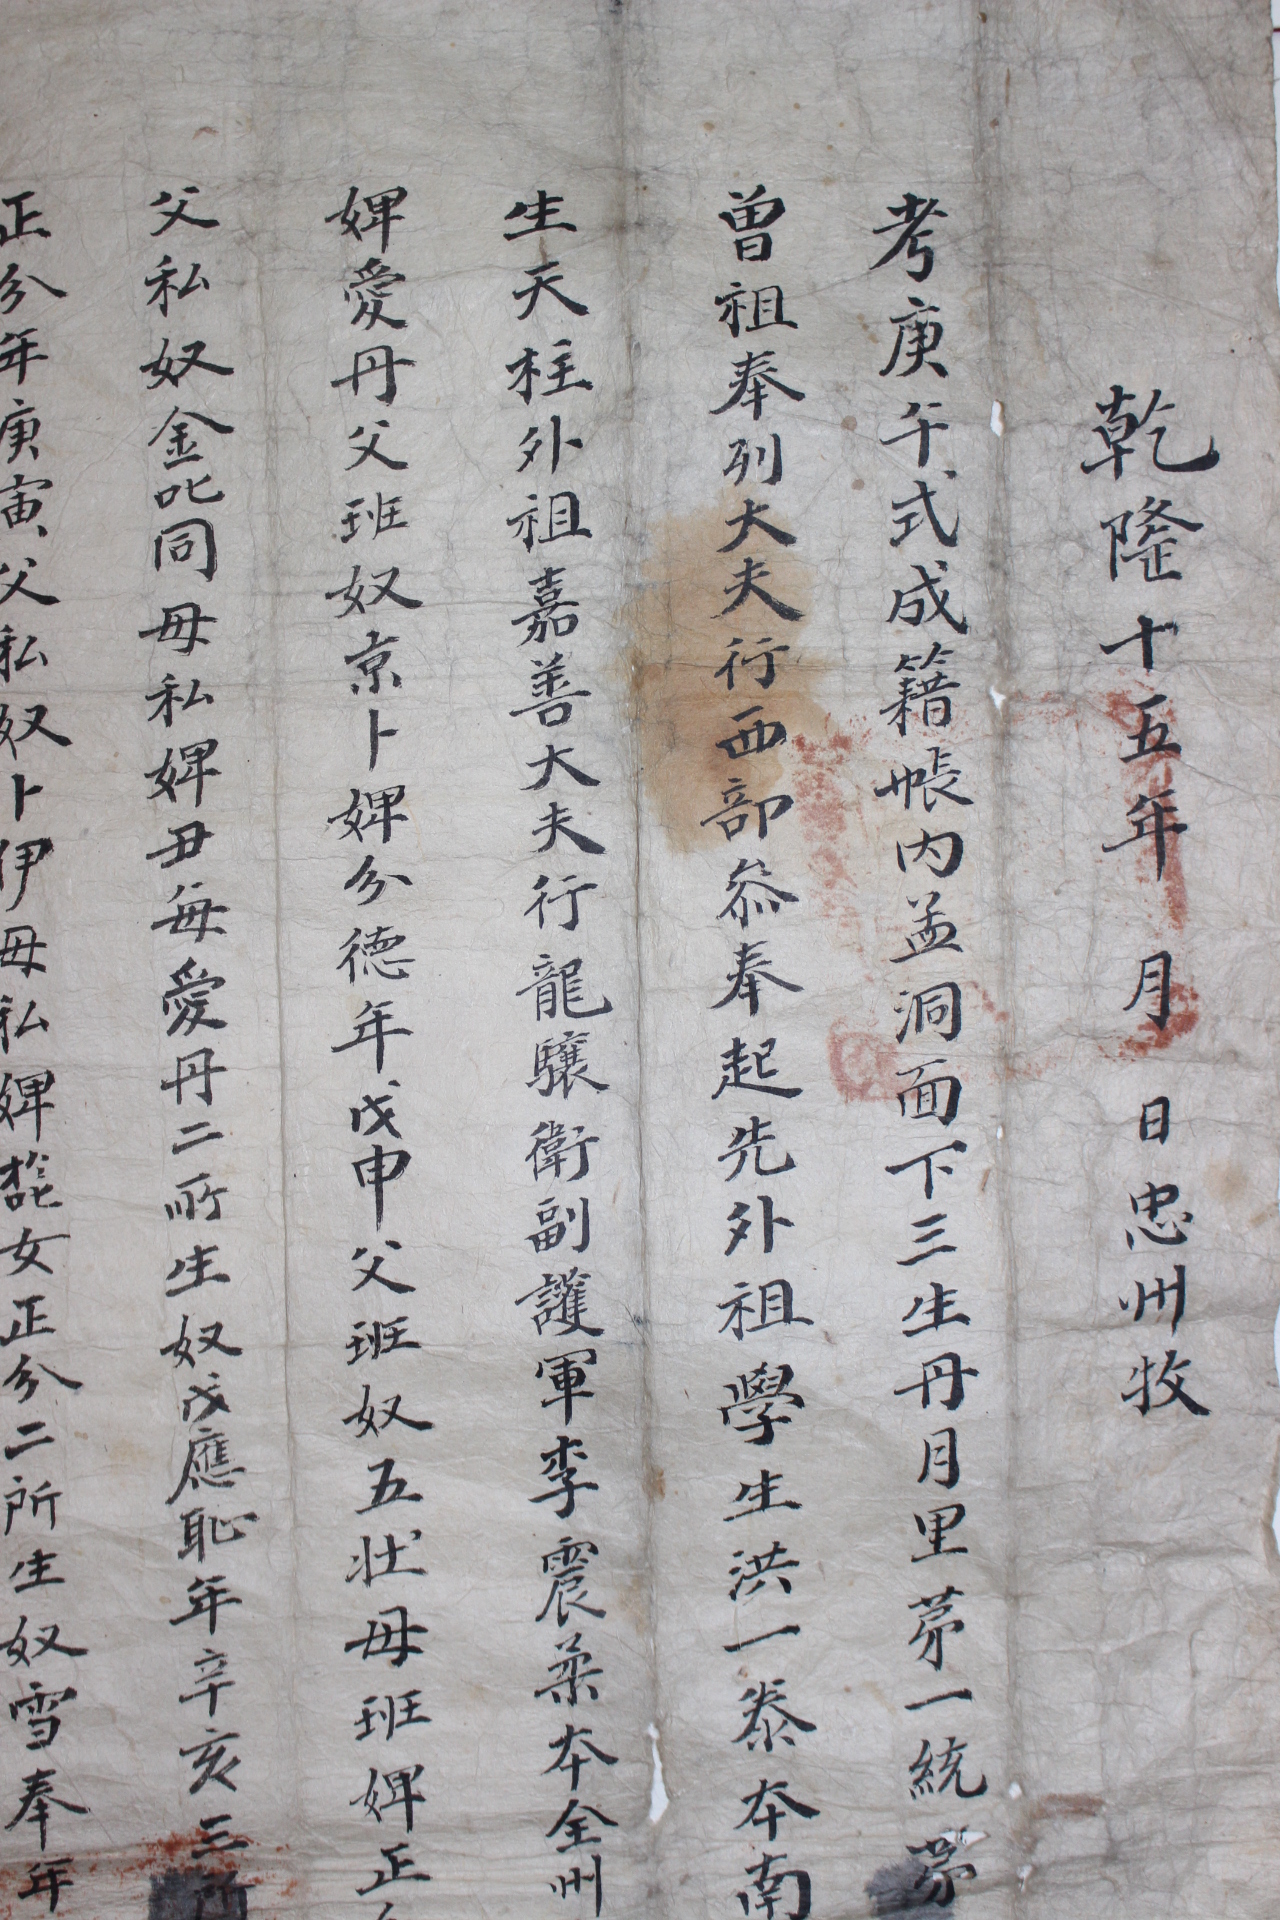 乾隆十五年 月 日忠州牧
考庚午式成籍帳内孟洞面下三生丹月里苐一統苐
曾祖奉列大夫行西部叅奉起先外祖學生洪一泰本南
生天柱外祖嘉善大夫行龍驤衛副護軍李震柔本全州
婢愛丹父班奴京卜婢分德年戊申父班奴五壮母班婢正
父私奴金叱同母私婢丑每愛丹二所生奴戊應耻年辛亥三所
正分年庚寅父私奴卜伊母私婢女正分二所生奴雪奉年